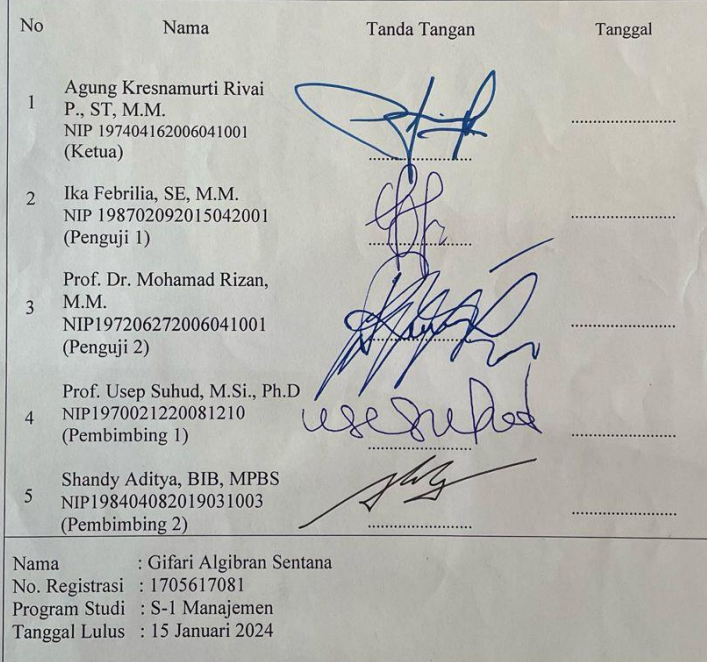 No Nama Tanda Tangan Tanggal
1 Agung Kresnamurti Rivai
P., ST, M.M.
NIP 197404162006041001
(Ketua)
2 Ika Febrilia, SE, M.M.
NIP 198702092015042001
(Penguji 1)
3 Prof. Dr. Mohamad Rizan,
M.M.
NIP197206272006041001
(Penguji 2)
4 Prof. Usep Suhud, M.Si., Ph.D
NIP1970021220081210
(Pembimbing 1)
usepsuhud
5 Shandy Aditya, BIB, MPBS
NIP198404082019031003
(Pembimbing 2)
Nama : Gifari Algibran Sentana
No. Registrasi : 1705617081
Program Studi : S-1 Manajemen
Tanggal Lulus : 15 Januari 2024